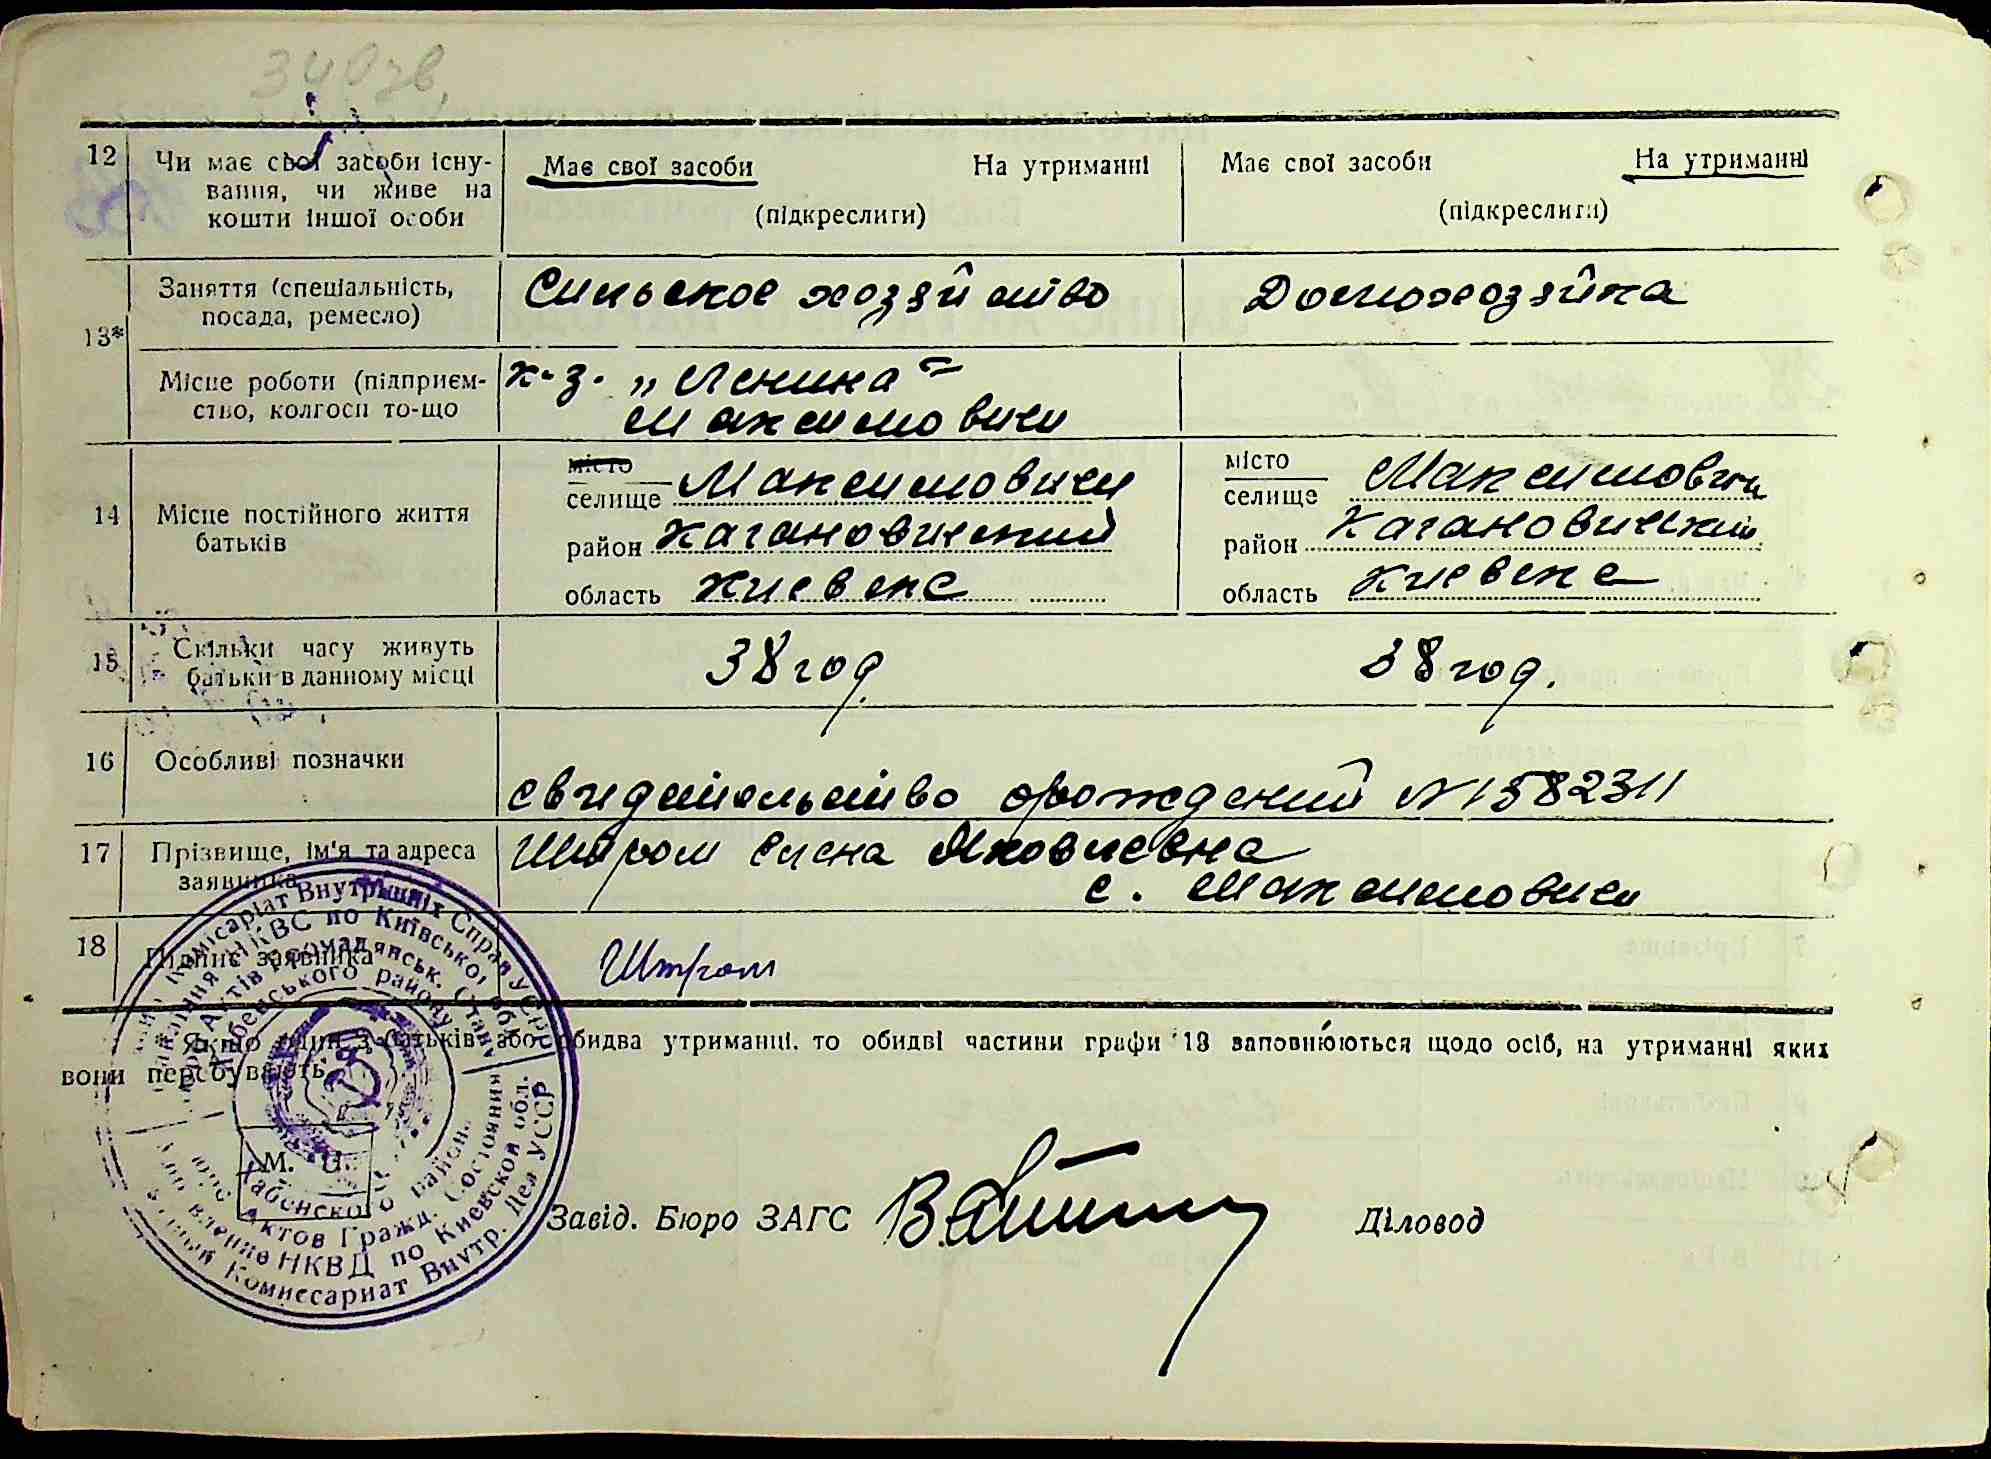 340 зв.
12 Чи має свої засоби існу- Має свої засоби На утриманні Має свої засоби На утриманні
вання, чи живе на
кошти іншої особи (підкреслити) (підкреслити)
Заняття (спеціальність, Сильское хозяйство Домохозяйка
посада, ремесло)
13*
Місце роботи (підприєм- к-з. „Ленина"
ство, колгосп то-що Максимовичи
місто Максимовичи місто Максимовичи
селище селище
14 Місце постійного життя
батьків
район Кагановичский район Кагановичский
область Киевске область Киевске
15 Скільки часу живуть 38 год 38 год.
батьки в данному місці
16 Особливі позначки
свидетельство орождений №1582311
17 Прізвище, ім'я та адреса Штром Елена Яковлевна
заявника с. Максимовичи
18 Підпис заявника Штром
Якщо один з батьків або обидва утриманці. то обидві частини графи 13 заповнюються щодо осіб, на утриманні яких
вони перебувають.
М. П.
Завід. Бюро ЗАГС Діловод
Комісаріат Внутрішніх Справ УСРР
НКВС по Київської обл.
Актів Громадянськ. Стану
Хабенського району
Хабенского район.
Актов Гражд. Состояния
НКВД по Киевской обл.
Комиссариат Внутр. Дел УССР